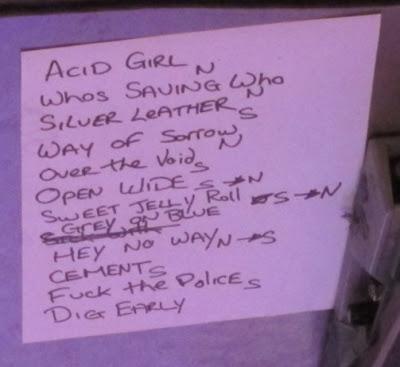 ACID GIRL N
WHOS SAVING WHO N
SILVER LEATHER S
WAY OF SORROW N
OVER the VOID S
OPEN WIDE S → N
SWEET JELLY ROLL S → N
GREY ON BLUE
HEY NO WAY N → S
CEMENT S
FUCK the POLICE S
DIG EARLY